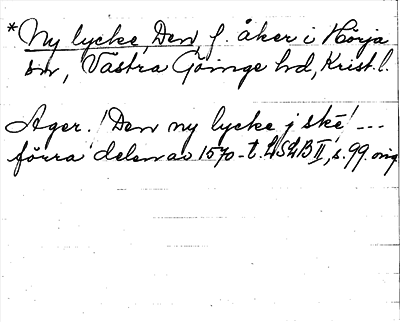 *Ny lycke, Den, f. åker i Hörja
sn, Västra Göinge hd, Krist. l.
Ager. ! Den ny lycke j ske ! ---
förra delen av 1570-t. LSLB II, s. 99. orig.